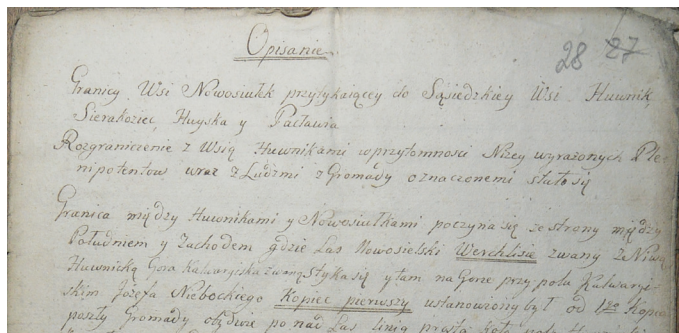 Opisanie
28 27
Granicy Wsi Nowosiułek przytykaiący do Sąsiedzkiey Wsi Huwnik,
Sierakoziec, Huyska y Pacławia
Rozgraniczenie z Wsią Huwnikami w przytomnosci Niżey wyrażonych Ple-
nipotentow wraz z Ludzmi z Gromady oznaczonemi stało się
Granica między Huwnikami y Nowosiułkami poczyna się ze strony między
Południem y Zachodem gdzie Las Nowosielski Werchlisie zwany z Niwą
Huwnicką Gora Kalwaryiska zwaną styka się y tam na Gorze przy polu Kalwaryi-
skim Józefa Niebockiego Kopiec pierwszy ustanowiony był od 1go Kopca
poszły Gromady obydwie ponad Las linią prostą